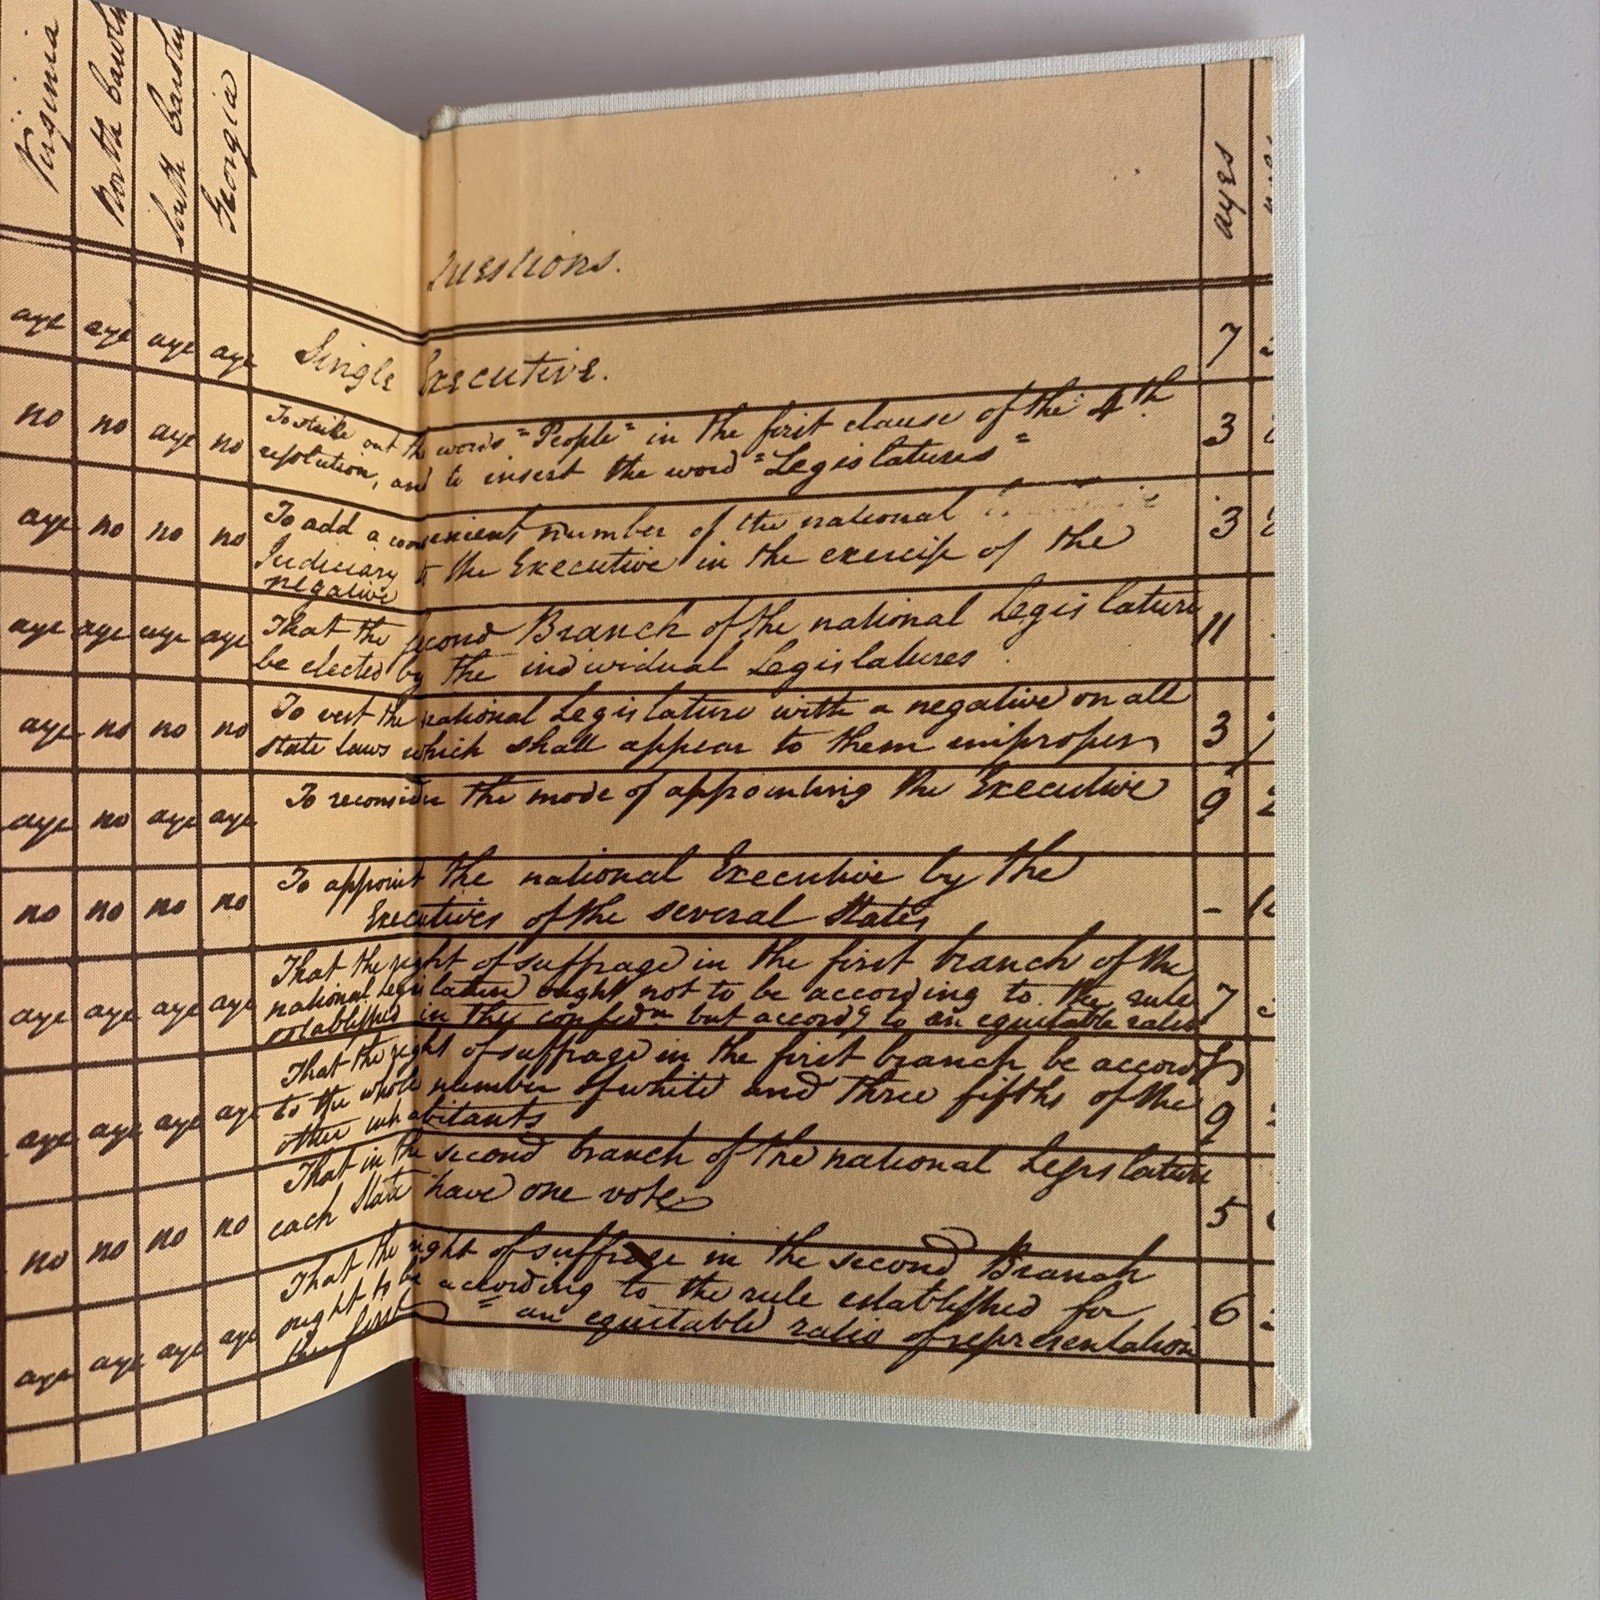 Virginia
North Carol
South Carolin
Georgia
uestions.
ayes
aye aye aye aye Single Executive. 7
no no aye no To strike out the words "People" in the first clause of the 4th
resolution, and to insert the word "Legislatures" 3
aye no no no To add a convenient number of the national
Judiciary to the Executive in the exercise of the 3
negative
aye aye aye aye That the second Branch of the national Legislature
be elected by the individual Legislatures. 11
aye no no no To vest the national Legislature with a negative on all
State Laws which shall appear to them improper 3 7
aye no aye aye To reconsider the mode of appointing the Executive 9 2
no no no no To appoint the national Executive by the
Executives of the several States - 10
aye aye aye aye That the right of suffrage in the first branch of the
national Legislature ought not to be according to the rule 7 3
established in the confedn but accordg to an equitable ratio
aye aye aye aye That the right of suffrage in the first branch be accordg
to the whole number of white and three fifths of the 9
other inhabitants
no no no no That in the second branch of the national Legislature
each State have one vote 5
aye aye aye aye That the right of suffrage in the second Branch
ought to be according to the rule established for 6
the first = an equitable ratio of representation